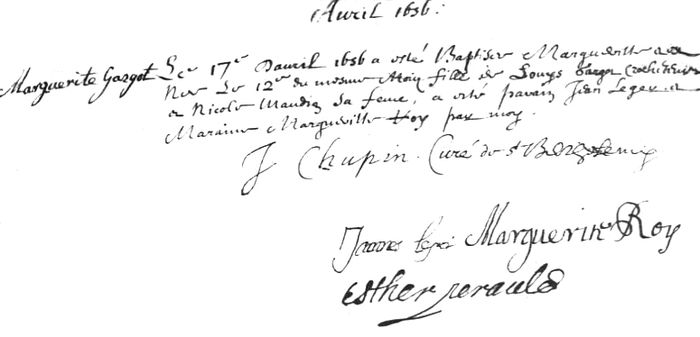 Auril 1656.
Marguerite Gazgot Le 17e Dauril 1656 a esté Baptisee Margueritte
Nee Le 12e du mesme Mois fille de Louys Gargot Crochetteur
et Nicole Maudin sa feme, a esté parain Jean Leger et
Maraine Margueritte Roy par moy.
J Chupin. Curé de st Barthelemi
Marguerite Roy
Esther perauld